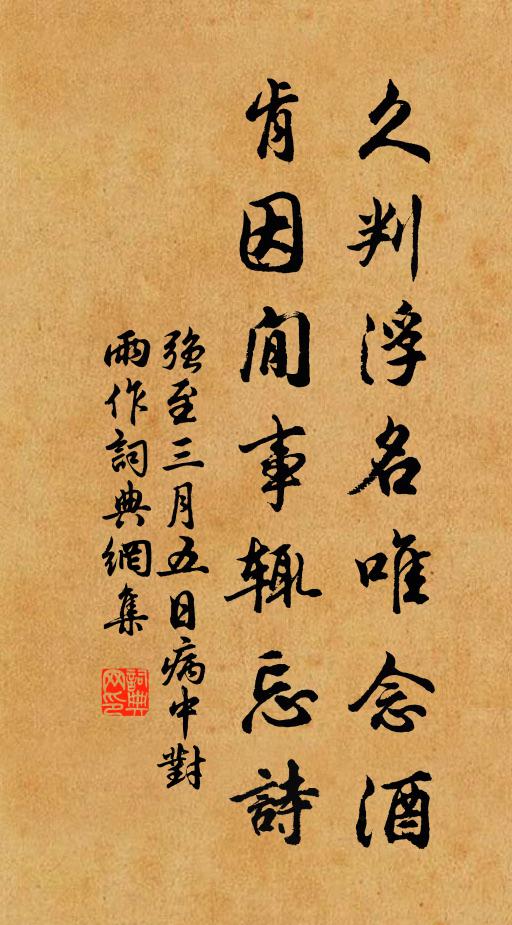 久判浮名唯念酒
肯因闲事辄忘詩
強至三月五日病中對
雨作詞典網集
詞典
网印